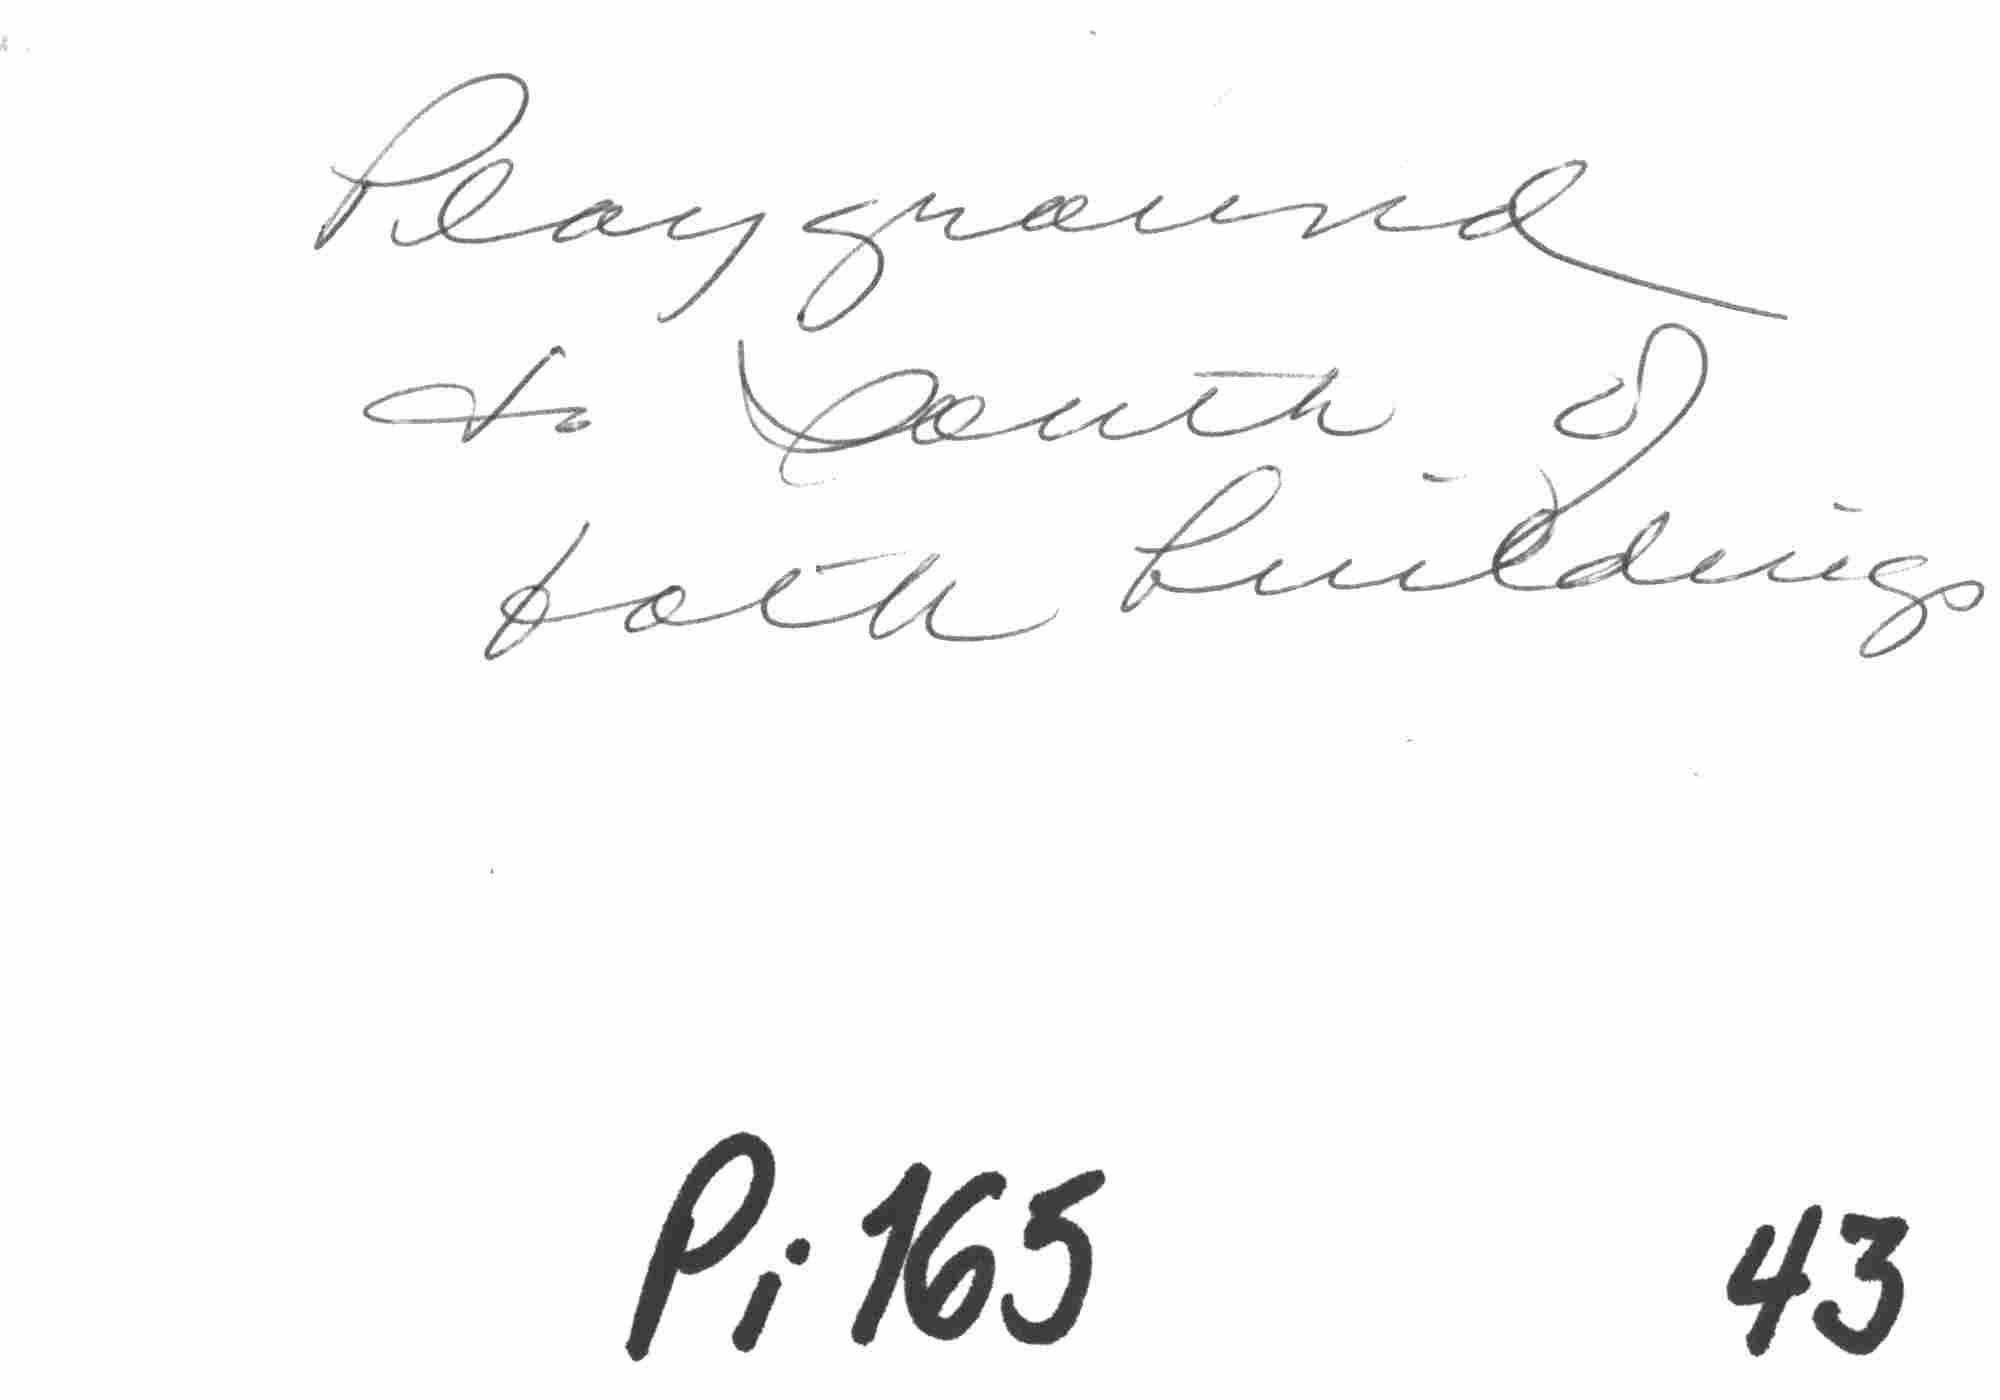 Playground
to South of
both buildings
Pi 165 43